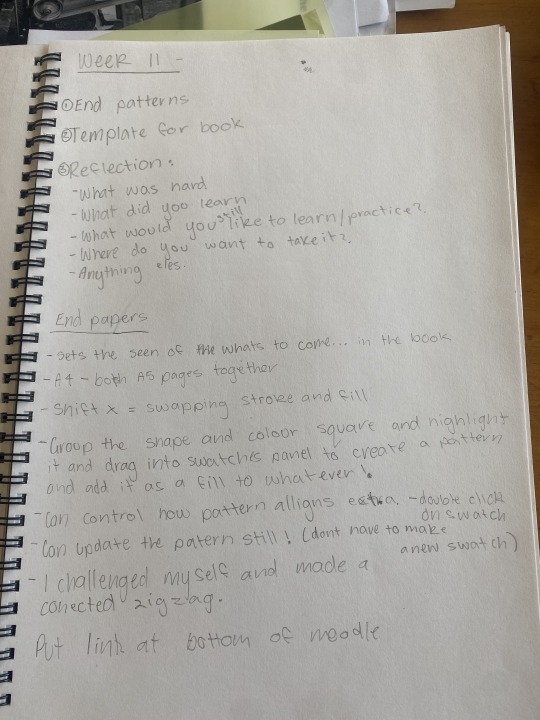 Week 11 -
①End patterns
②Template for book
③Reflection:
-What was hard
-What did yoo learn
-What would you still like to learn/practice?
-Where do you want to take it?
-Anything eles.
End papers
-Sets the seen of the whats to come... in the book
-A4 - both A5 pages together
-Shift x = swapping stroke and fill
-Group the shape and colour square and highlight
it and drag into swatches panel to create a pattern
and add it as a fill to whatever!
-Can control how pattern alligns extra. -double click
on swatch
-Can update the patern still! (dont have to make
a new swatch)
-I challenged myself and made a
conected zigzag.
Put link at bottom of moodle